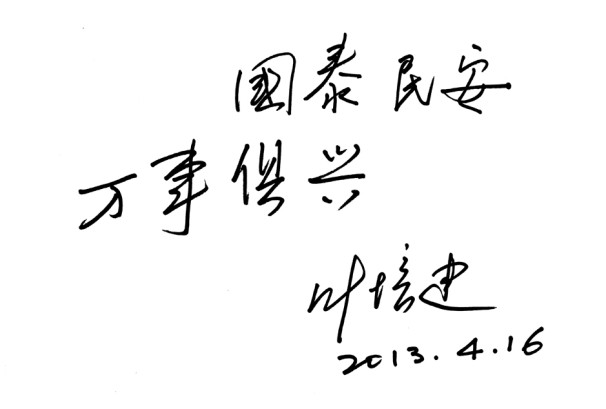 國泰民安
万事俱兴
叶培建
2013.4.16